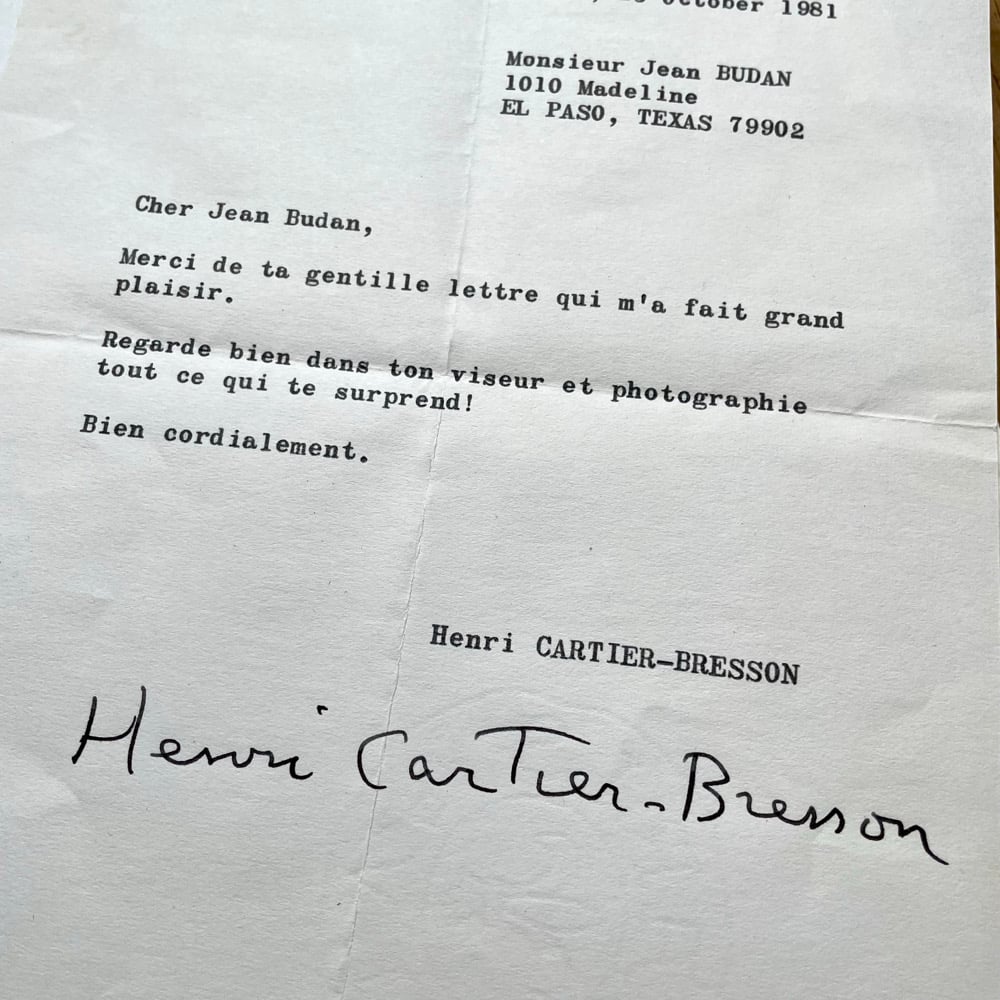 October 1981
Monsieur Jean BUDAN
1010 Madeline
EL PASO, TEXAS 79902
Cher Jean Budan,
Merci de ta gentille lettre qui m'a fait grand
plaisir.
Regarde bien dans ton viseur et photographie
tout ce qui te surprend!
Bien cordialement.
Henri CARTIER-BRESSON
Henri Cartier-Bresson